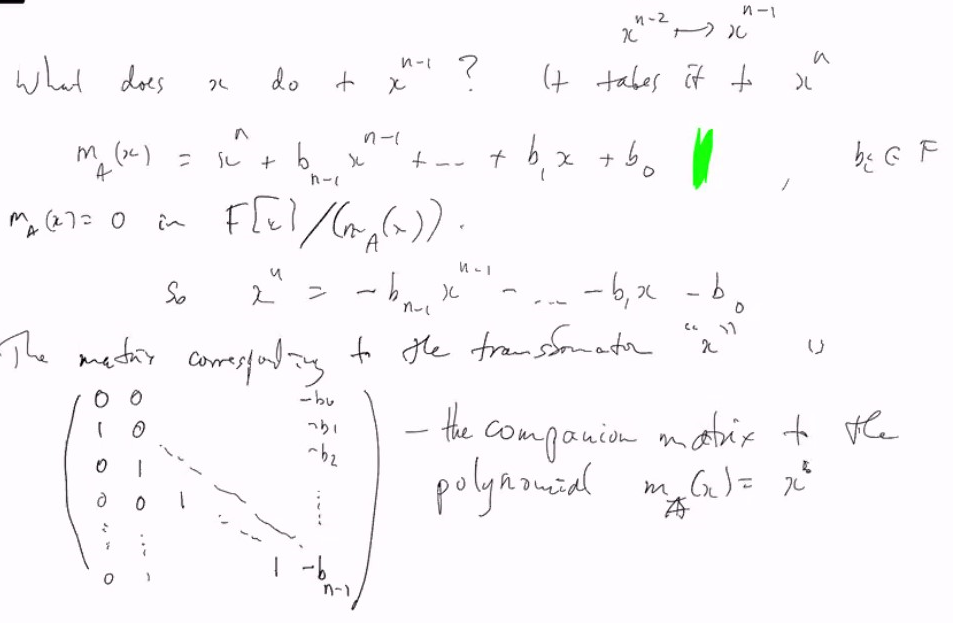 xⁿ⁻² ↦ xⁿ⁻¹
What does x do to xⁿ⁻¹ ? It takes it to xⁿ
m_A(x) = xⁿ + b_{n-1} xⁿ⁻¹ + ... + b₁x + b₀ , bᵢ ∈ F
m_A(x) = 0 in F[x]/(m_A(x)).
So xⁿ = -b_{n-1} xⁿ⁻¹ - ... - b₁x - b₀
The matrix corresponding to the transformation "x" is
0 0 -b₀
1 0 -b₁ - the companion matrix to the
0 1 -b₂
0 0 1 ⋮ polynomial m_A(x) = x
⋮ ⋮
0 1 -b_{n-1}